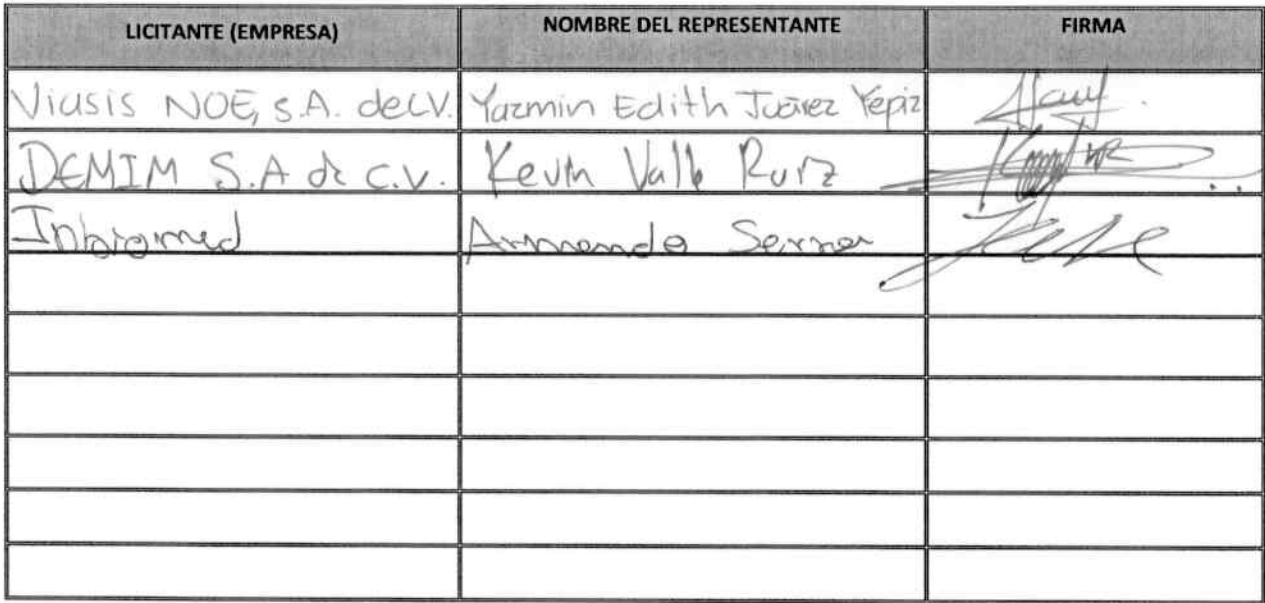 LICITANTE (EMPRESA) NOMBRE DEL REPRESENTANTE FIRMA
Viasis NOE, S.A. de C.V. Yazmin Edith Juárez Yepiz
DEMIM S.A de C.V. Kevin Valle Ruiz
Inbiomed Armando Serna